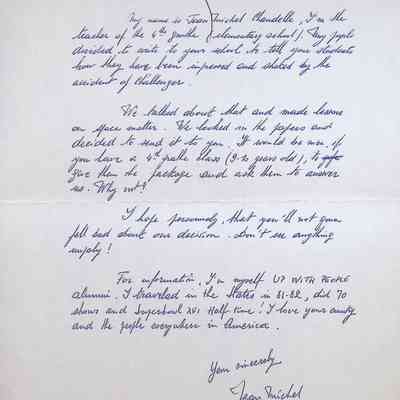 My name is Jean Michel Chandelle, I'm the
teacher of the 4th grade (elementary school). My pupils
decided to write to your school to tell your students
how they have been impressed and shaked by the
accident of Challenger.
We talked about that and made lessons
on space matter. We looked in the papers and
decided to send it to you. It would be nice, if
you have a 4th grade class (9-10 years old), to
give them the package and ask them to answer
us. Why not?
I hope personnaly, that you'll not
feel bad about our decision. Don't see anything
!
For information, I'm myself UP WITH PEOPLE
alumni. I traveled in the States in 81-82, did 70
shows and Superbowl XVI Half-time! I love your country
and the people everywhere in America.
Your sincerely
Jean Michel